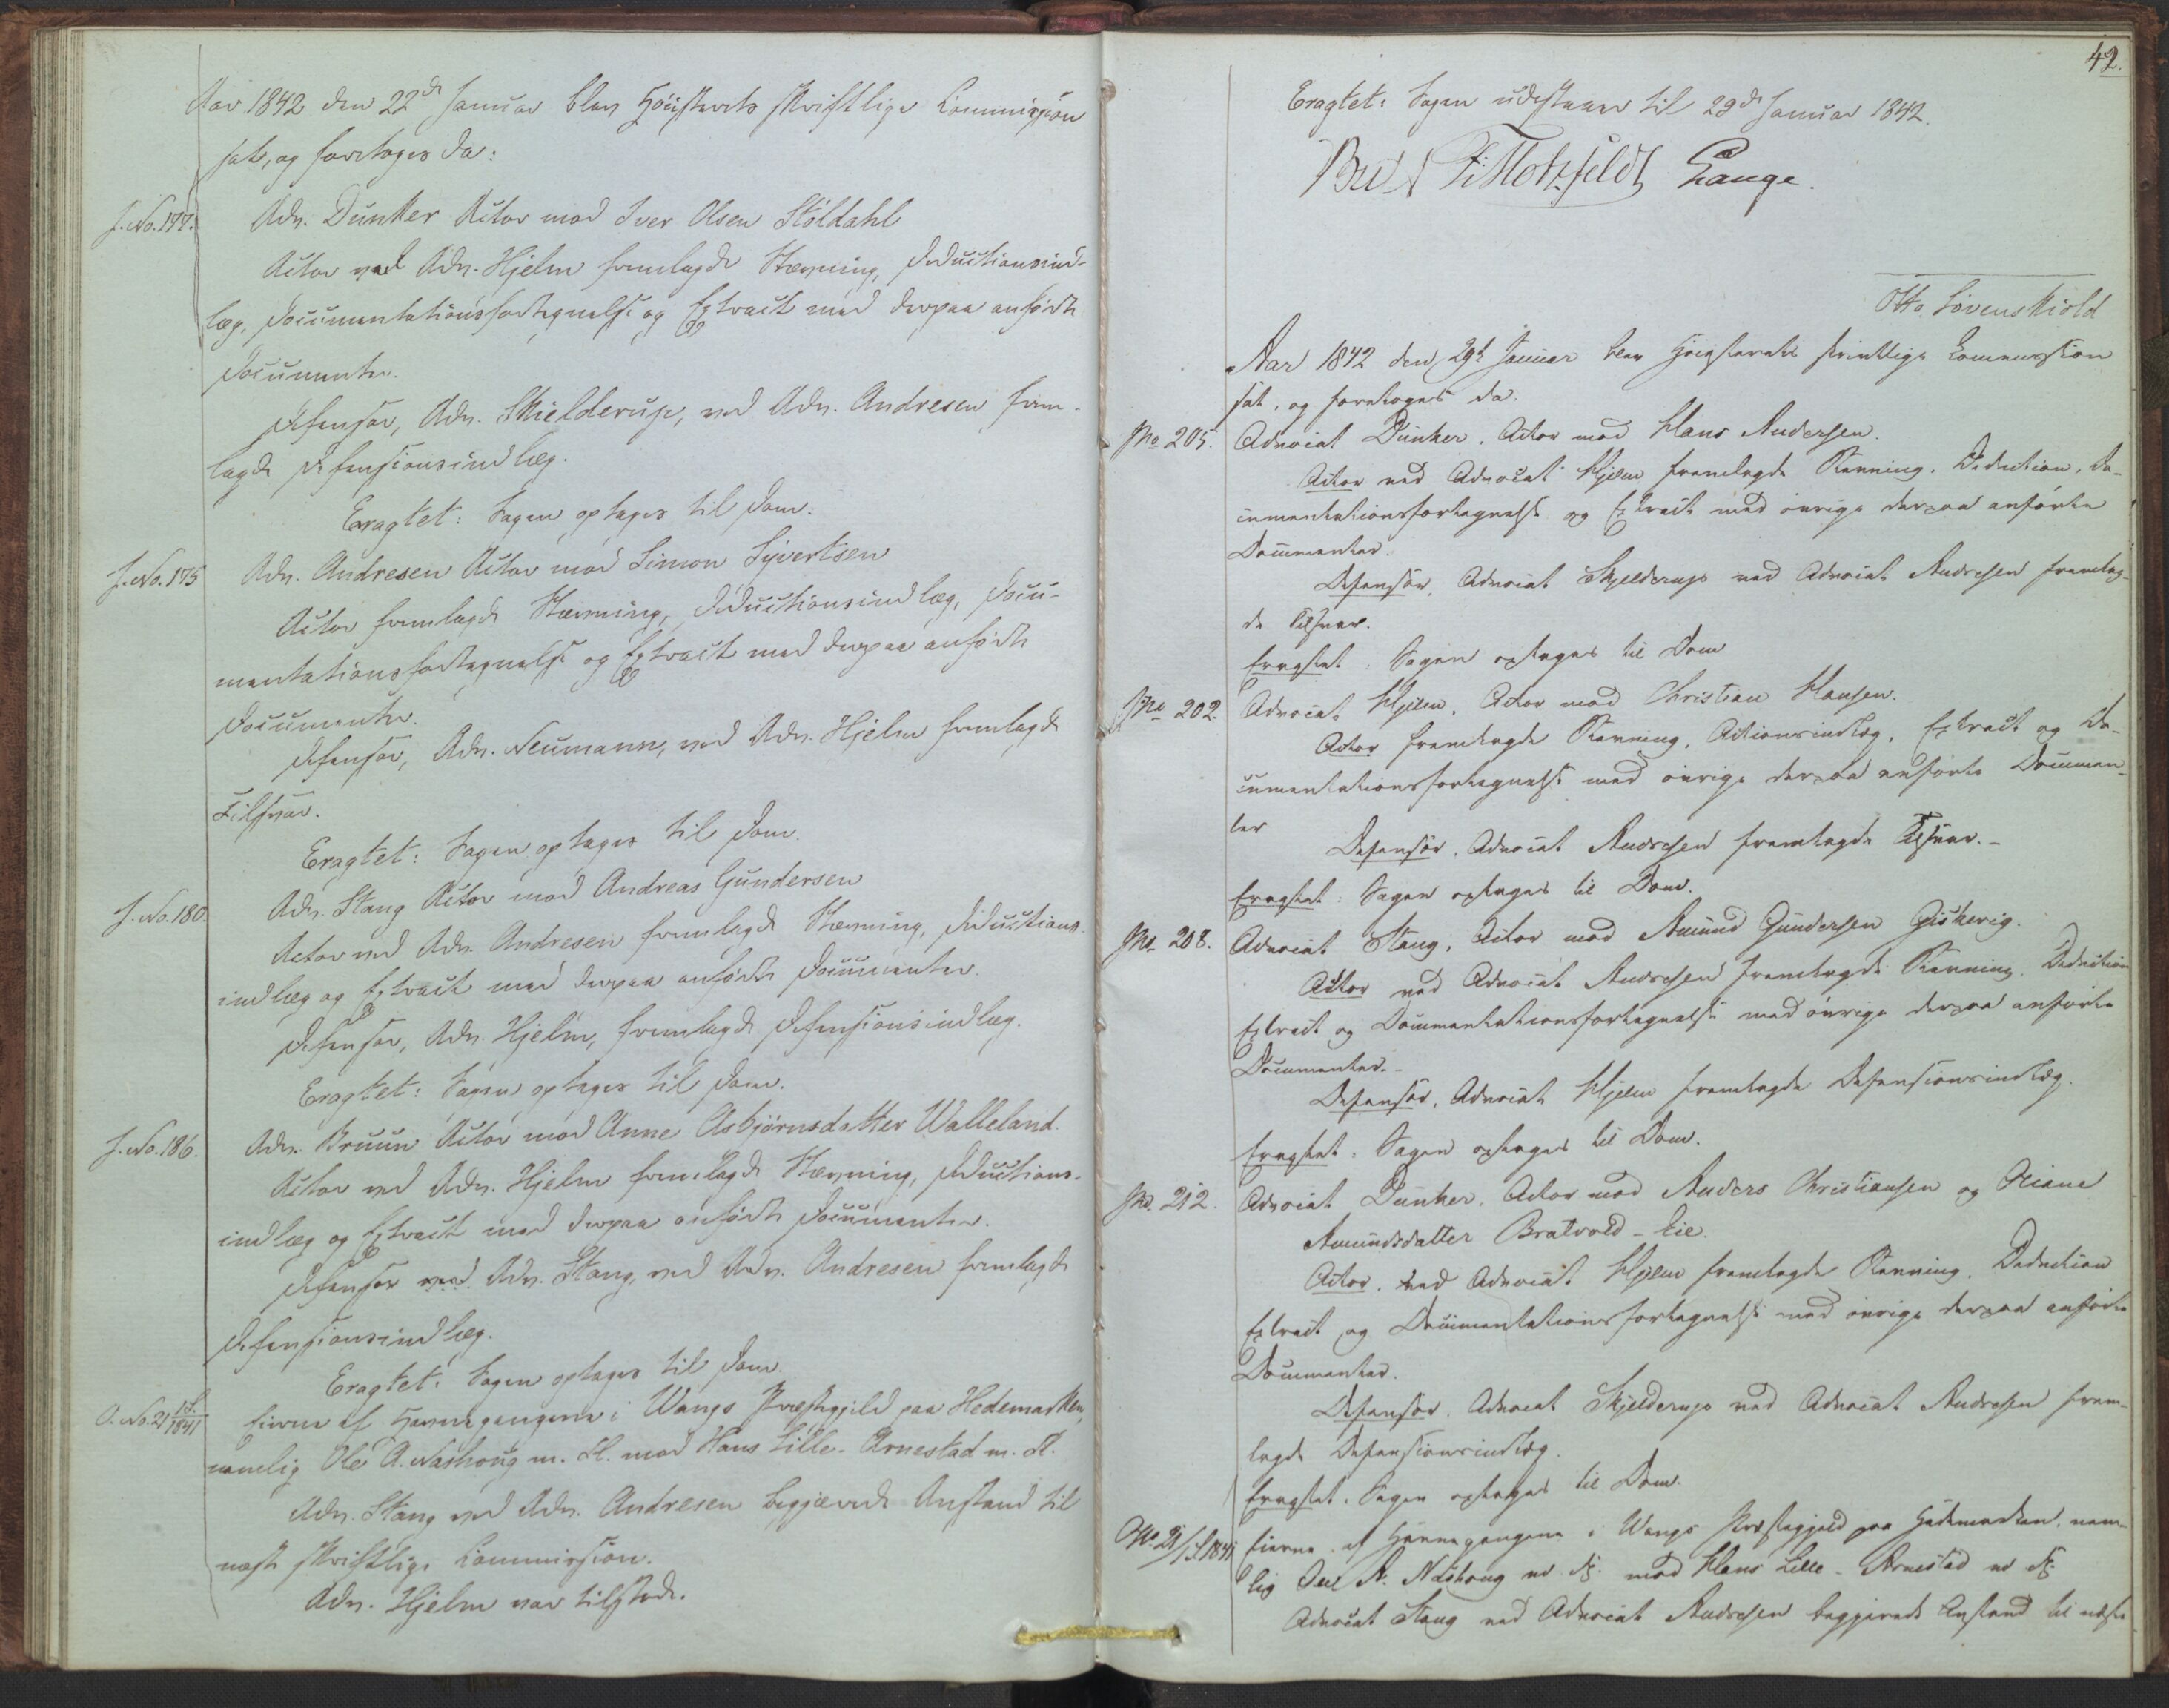 Aar 1842 den 22de Januar blev Höiesterets skriftlige Commission
sat, og foretoges da:
J. No. 177. Adv. Dunker Actor mod Iver Olsen Stöldahl
Actor ved Adv. Hjelm fremlagde Stævning, Deductionsind-
læg, Documentationsfortegnelse og Extract med derpaa anförte
Documenter.
Defensor, Adv. Skielderup, ved Adv. Andresen frem-
lagde Defensionsindlæg.
Eragtet: Sagen optages til Dom.
J. No. 175 Adv. Andresen Actor mod Simon Syvertsen
Actor fremlagde Stævning, Deductionsindlæg, Docu-
mentationsfortegnelse og Extract med derpaa anförte
Documenter.
Defensor, Adv. Neumann, ved Adv. Hjelm fremlagde
Tilsvar.
Eragtet: Sagen optages til Dom.
J. No. 180. Adv. Stang Actor mod Andreas Gundersen
Actor ved Adv. Andresen fremlagde Stævning, Deductions-
indlæg og Extract med derpaa anförte Documenter.
Defensor, Adv. Hjelm, fremlagde Defensionsindlæg.
Eragtet: Sagen optages til Dom.
J. No. 186. Adv. Bruun Actor mod Anne Asbjörnsdatter Walleland.
Actor ved Adv. Hjelm fremlagde Stævning, Deductions-
indlæg og Extract med derpaa anförte Documenter.
Defensor ved Adv. Stang, ved Adv. Andresen fremlagde
Defensionsindlæg.
Eragtet: Sagen optages til Dom.
O. No. 21 1841 Eierne af Havnegangene i Wangs Præstegjeld paa Hedemarken,
nemlig Ole A. Nashoug m. Fl. mod Hans Lille-Arnestad m. Fl.
Adv. Stang ved Adv. Andresen begjærede Anstand til
næste skriftlige Commission.
Adv. Hjelm var tilstede.
42.
Eragtet: Sagen udstaaer til 29de Januar 1842.
F. Motzfeldt Lange.
Otto Lövenskiold
Aar 1842 den 29de Januar blev Höiesterets skriftlige Commission
sat, og foretoges da.
No 205. Advocat Dunker, Actor mod Hans Andersen.
Actor ved Advocat Hjelm fremlagde Stævning, Deduction, Do-
cumentationsfortegnelse og Extract med övrige derpaa anförte
Documenter.
Defensor, Advocat Skjelderup ved Advocat Andresen fremlag-
de Tilsvar.
Eragtet: Sagen optages til Dom
No 202. Advocat Hjelm, Actor mod Christian Hansen.
Actor fremlagde Stævning, Actionsindlæg, Extract og Do-
cumentationsfortegnelse med övrige derpaa anförte Documen-
ter
Defensor, Advocat Andresen fremlagde Tilsvar.-
Eragtet: Sagen optages til Dom.
No 208. Advocat Stang, Actor mod Amund Gundersen Giskerig.
Actor ved Advocat Andresen fremlagde Stævning, Deduction
Extract og Documentationsfortegnelse med övrige derpaa anförte
Documenter.-
Defensor, Advocat Hjelm fremlagde Defensionsindlæg.
Eragtet: Sagen optages til Dom.
No. 212. Advocat Dunker, Actor mod Anders Christiansen og
Amundsdatter Bratvold-Eie.
Actor, ved Advocat Hjelm fremlagde Stævning, Deduction
Extract og Documentationsfortegnelse med övrige derpaa anförte
Documenter.
Defensor, Advocat Skjelderup ved Advocat Andresen frem-
lagde Defensionsindlæg.
Eragtet: Sagen optages til Dom.
No. 21 1841 Eierne af Havnegangene i Wangs Præstegjeld paa Hedemarken, nem-
lig A. Nashoug m. Fl. mod Hans Lille-Arnestad m Fl.
Advocat Stang ved Advocat Andresen begjærede Anstand til næste